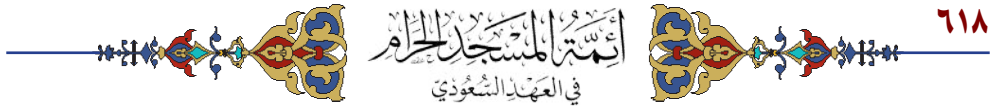 ٦١٨
أَئِمَّةُ المَسْجِدِ الحَرَامِ
فِي العَهْدِ السُّعُودِيّ